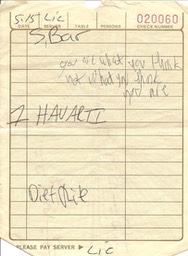 5/15 Lic
DATE SERVER TABLE PERSONS CHECK NUMBER
020060
S, Bar
you are what you think
not what you think
you are
1 HAVARTI
Diet Rite
PLEASE PAY SERVER ► Lic